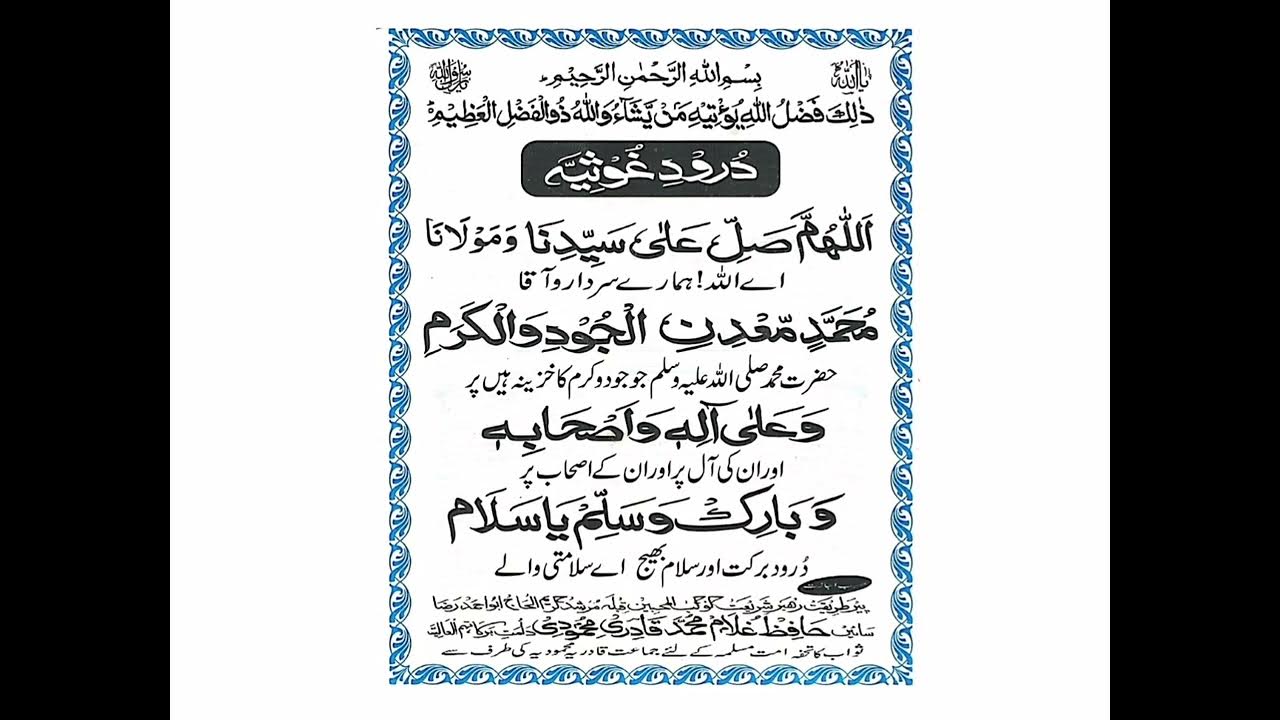 یااللہ
بِسْمِ اللّٰهِ الرَّحْمٰنِ الرَّحِيْمِ
یارسول اللہ
ذٰلِكَ فَضْلُ اللّٰهِ يُؤْتِيْهِ مَنْ يَّشَآءُ وَاللّٰهُ ذُو الْفَضْلِ الْعَظِيْمِ
دُرودِ غَوْثِیَّہ
اَللّٰهُمَّ صَلِّ عَلٰى سَيِّدِنَا وَمَوْلَانَا
اے اللہ! ہمارے سردار و آقا
مُحَمَّدٍ مَّعْدِنِ الْجُوْدِ وَالْكَرَمِ
حضرت محمد صلی اللہ علیہ وسلم جو جود و کرم کا خزینہ ہیں پر
وَعَلٰى آلِهٖ وَاَصْحَابِهٖ
اور ان کی آل پر اور ان کے اصحاب پر
وَبَارِكْ وَسَلِّمْ يَا سَلَام
دُرود برکت اور سلام بھیج اے سلامتی والے
پیر طریقت رھبر شریعت کوکب المحبین قبلہ مرشد کریم الحاج ابو احمد رضا
سائیں حافظ غلام محمد قادری محمودی دامت برکاتہم العالیہ
ثواب کا تحفہ امت مسلمہ کے لئے جماعت قادریہ محمودیہ کی طرف سے